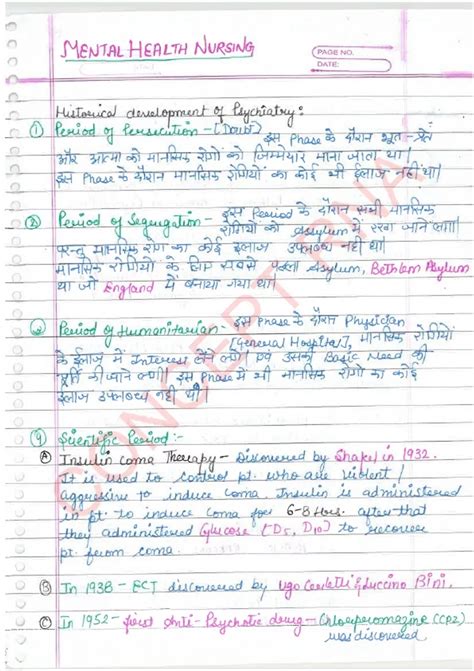 MENTAL HEALTH NURSING
PAGE NO.
DATE:
Historical development of Psychiatry:
① Period of Persecution - [Doubt] इस Phase के दौरान भूत-प्रेत
और आत्मा को मानसिक रोगों को जिम्मेदार माना जाता था।
इस Phase के दौरान मानसिक रोगियों का कोई भी ईलाज नहीं था।
② Period of Segrugation - इस Period के दौरान सभी मानसिक
रोगियों को Asylum में रखा जाने लगा।
परन्तु मानसिक रोग का कोई ईलाज उपलब्ध नहीं था।
मानसिक रोगियों के लिए सबसे पहला Asylum, Bethlem Asylum
था जो England में बनाया गया था।
③ Period of Humanitarian - इस Phase के दौरान Physician
[General Hospital], मानसिक रोगियों
के ईलाज में Interest लेने लगे। एवं उसकी Basic Need की
पूर्ति की जाने लगी। इस Phase में भी मानसिक रोगों का कोई
ईलाज उपलब्ध नहीं थी।
④ Scientific Period :-
Ⓐ Insulin coma Therapy - Discovered by Shakel in 1932.
It is used to control pt. who are violent /
aggressive to induce coma. Insulin is administered
in pt. to induce coma for 6-8 Hrs. after that
they administered Glucose [D5, D10] to recover
pt. from coma.
Ⓑ In 1938 - ECT discovered by Ugo Cerletti & Luccino Bini.
Ⓒ In 1952 - first Anti-Psychotic drug - Chlorpromazine (CPZ)
was discovered
CONCEPT RNA